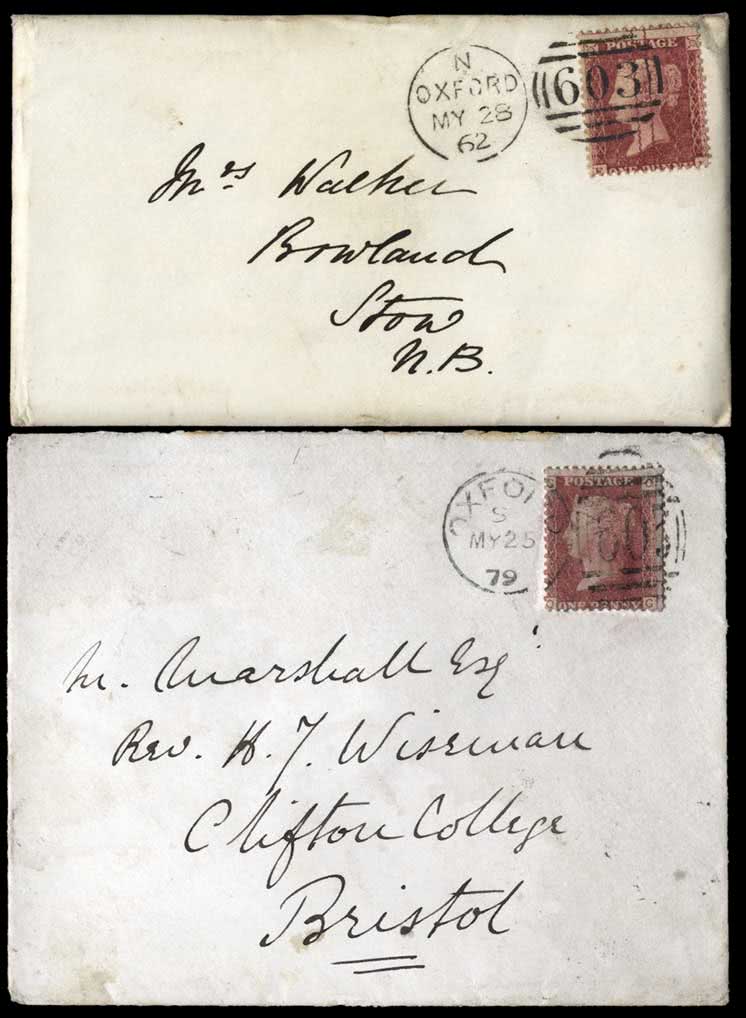 N
OXFORD
MY 28
62
603
POSTAGE
ONE PENNY
Mrs Walker
Bowland
Stow
N.B.
OXFO
S
MY 25
79
POSTAGE
603
ONE PENNY
M. Marshall Esqr
Rev. H. J. Wiseman
Clifton College
Bristol